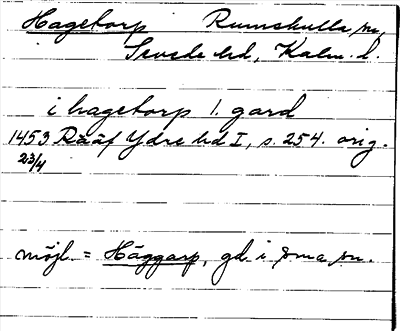 Hagetorp Rumskulla sn,
Sevede hd, Kalm. l.
i hagetorp 1. gard
1453 Rääf Ydre hd I, s. 254. orig.
23/4
möjl. = Häggarp, gd. i sma sn.